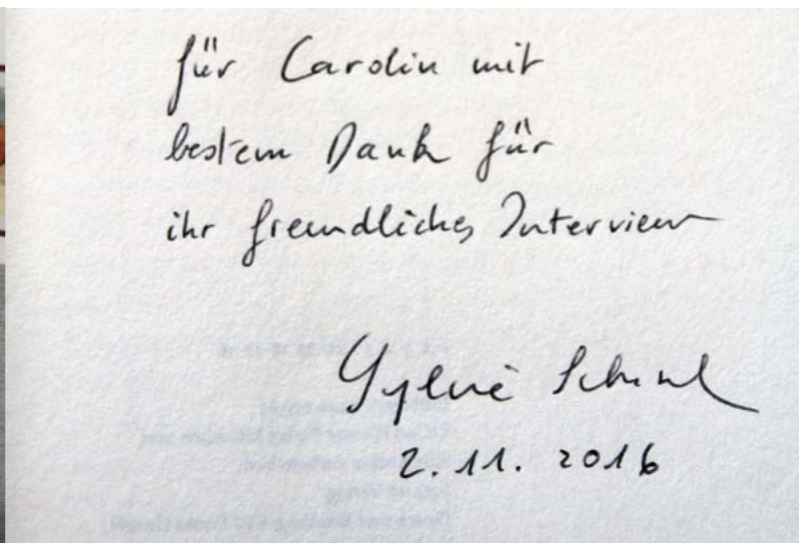 für Carolin mit
bestem Dank für
ihr freundliches Interview
Sylvie
2.11.2016